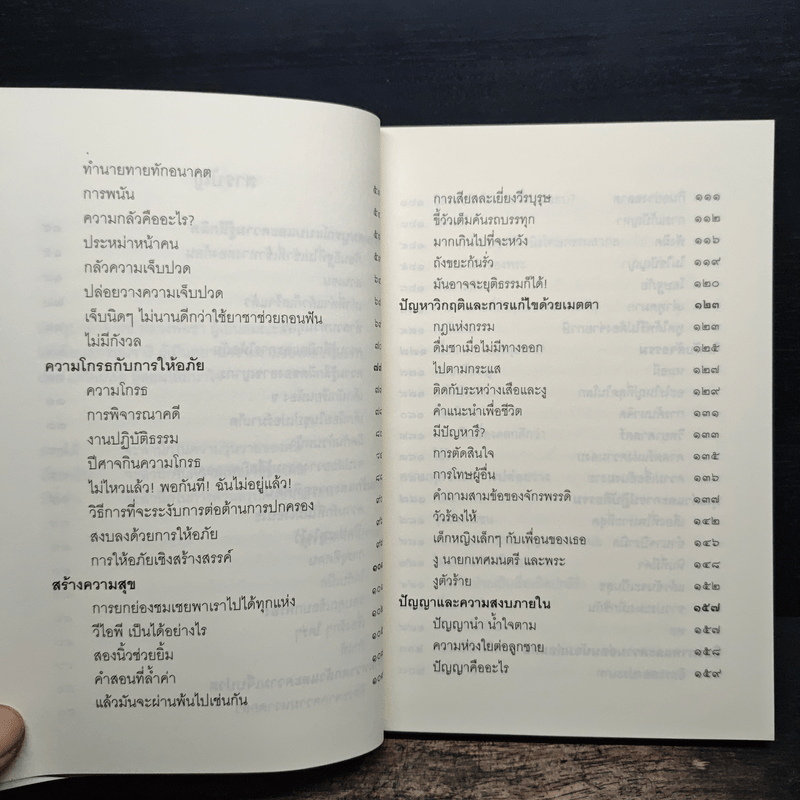 ทำนายทายทักอนาคต
การพนัน
ความกลัวคืออะไร?
ประหม่าหน้าคน
กลัวความเจ็บปวด
ปล่อยวางความเจ็บปวด
เจ็บนิดๆ ไม่นานดีกว่าใช้ยาชาช่วยถอนฟัน
ไม่มีกังวล
ความโกรธกับการให้อภัย
ความโกรธ
การพิจารณาคดี
งานปฏิบัติธรรม
ปีศาจกินความโกรธ
ไม่ไหวแล้ว! พอกันที! ฉันไม่อยู่แล้ว!
วิธีการที่จะระงับการต่อต้านการปกครอง
สงบลงด้วยการให้อภัย
การให้อภัยเชิงสร้างสรรค์
สร้างความสุข
การยกย่องชมเชยพาเราไปได้ทุกแห่ง
วีไอพี เป็นได้อย่างไร
สองนิ้วช่วยยิ้ม
คำสอนที่ล้ำค่า
แล้วมันจะผ่านพ้นไปเช่นกัน
การเสียสละเยี่ยงวีรบุรุษ ๑๑๑
ขี้วัวเต็มคันรถบรรทุก ๑๑๒
มากเกินไปที่จะหวัง ๑๑๖
ถังขยะก้นรั่ว ๑๑๙
มันอาจจะยุติธรรมก็ได้! ๑๒๐
ปัญหาวิกฤติและการแก้ไขด้วยเมตตา ๑๒๓
กฎแห่งกรรม ๑๒๓
ดื่มชาเมื่อไม่มีทางออก ๑๒๕
ไปตามกระแส ๑๒๗
ติดกับระหว่างเสือและงู ๑๒๙
คำแนะนำเพื่อชีวิต ๑๓๑
มีปัญหารึ? ๑๓๓
การตัดสินใจ ๑๓๕
การโทษผู้อื่น ๑๓๖
คำถามสามข้อของจักรพรรดิ ๑๓๗
วัวร้องไห้ ๑๔๒
เด็กหญิงเล็กๆ กับเพื่อนของเธอ ๑๔๖
งู นายกเทศมนตรี และพระ ๑๔๙
งูตัวร้าย ๑๕๒
ปัญญาและความสงบภายใน ๑๕๗
ปัญญานำ น้ำใจตาม ๑๕๗
ความห่วงใยต่อลูกชาย ๑๕๘
ปัญญาคืออะไร ๑๕๙